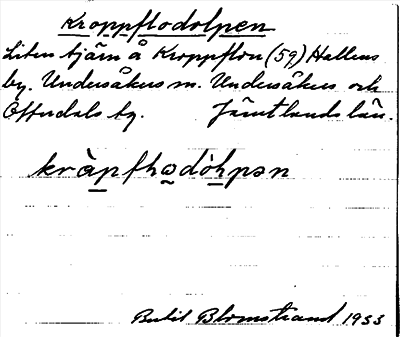 Kroppflodolpen
Liten tjärn å Kroppflon (59) Hallens
by. Undersåkers sn. Undersåkers och
Offerdals tg. Jämtlands län.
kràpfhədòhpən
Bertil Blomstrand 1933